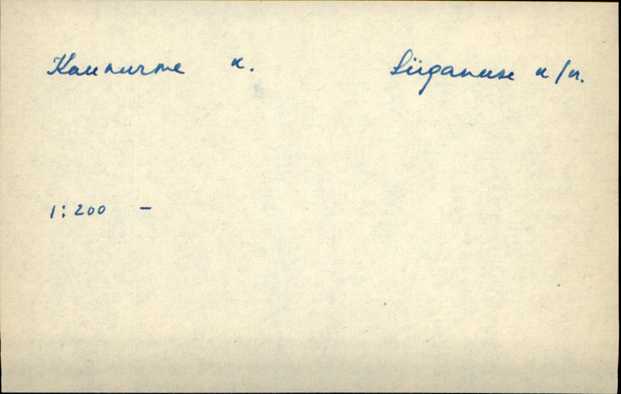 Kaunurme k. Lüganuse k/n.
1:200 –